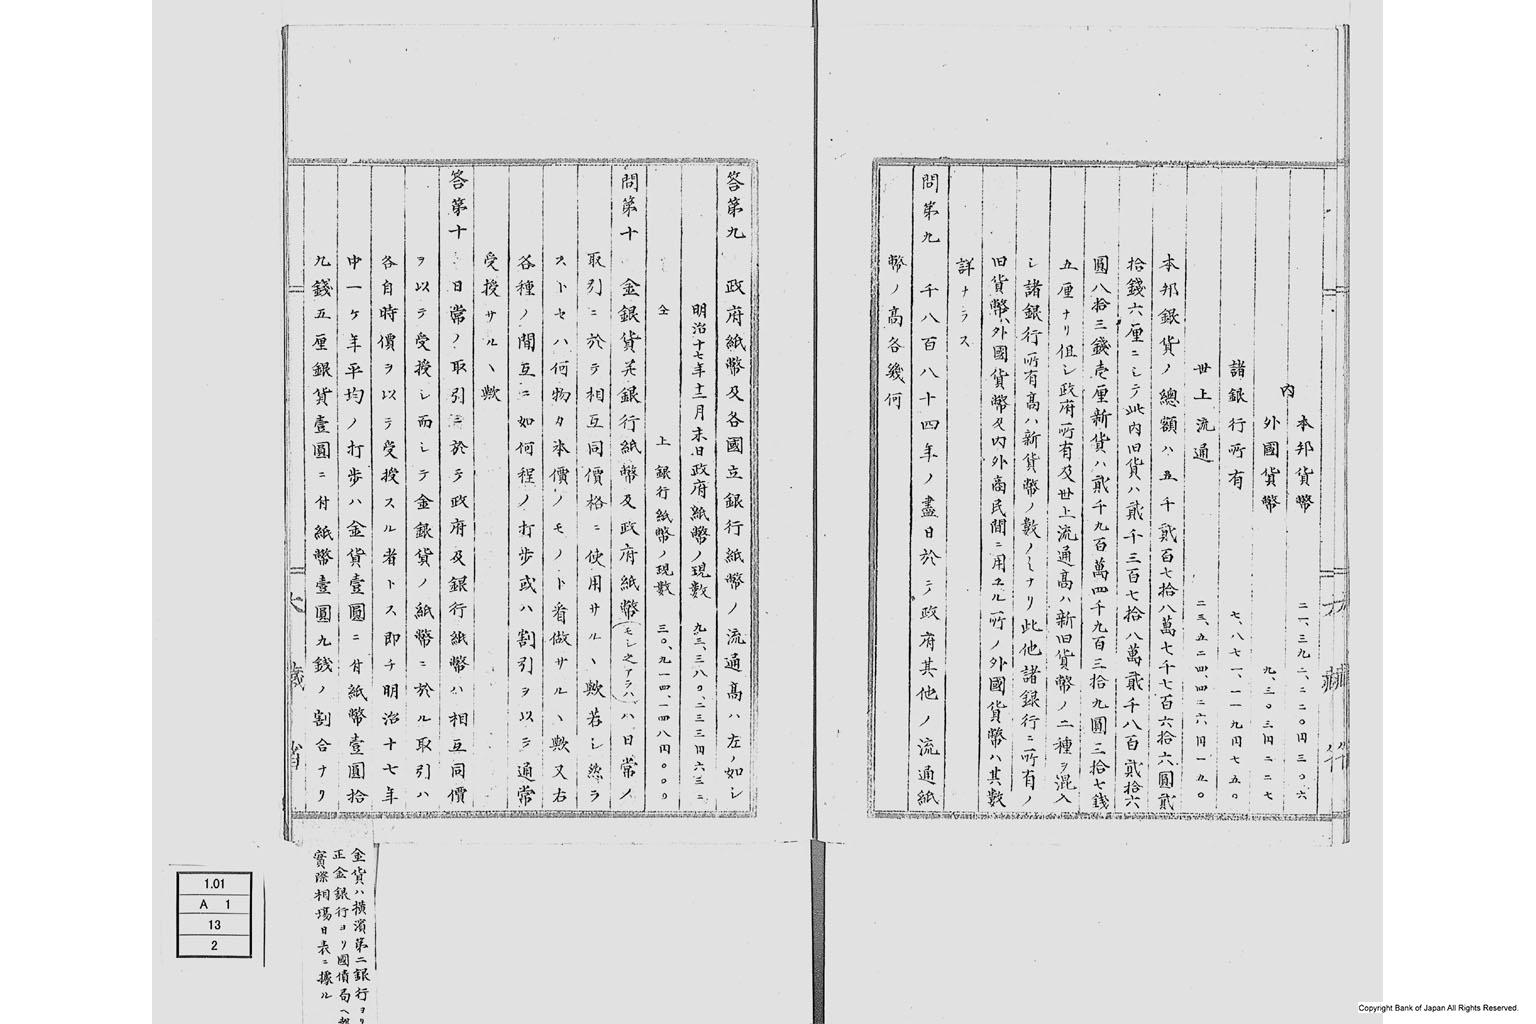 内
本邦貨幣 二一、三九二、二二〇円三〇六
外國貨幣 九、三〇三円二二七
諸銀行所有 七、八七一、一一九円七五〇
世上流通 二三、五二四、四二六円一九〇
本邦銀貨ノ總額ハ五千貳百七拾八萬七千七百六拾六圓貳
拾錢六厘ニシテ此内旧貨ハ貳千三百七拾八萬貳千八百貳拾六
圓八拾三錢壱厘新貨ハ貳千九百萬四千九百三拾九圓三拾七錢
五厘ナリ但シ政府所有及世上流通高ハ新旧貨幣ノ二種ヲ混入
シ諸銀行所有高ハ新貨幣ノ數ノミナリ此他諸銀行ニ所有ノ
旧貨幣外國貨幣及内外商民間ニ用ユル所ノ外國貨幣ハ其數
詳ナラス
問第九 千八百八十四年ノ盡日於テ政府其他ノ流通紙
幣ノ高各幾何
答第九 政府紙幣及各國立銀行紙幣ノ流通高ハ左ノ如シ
明治十七年十二月末日政府紙幣ノ現數 九三、三八〇、二三三円六三二
仝 上 銀行紙幣ノ現數 三〇、九一四、一四八円〇〇〇
問第十 金銀貨并銀行紙幣及政府紙幣(モシ之アラハ)ハ日常ノ
取引ニ於テ相互同價格ニ使用サルヽ歟若シ然ラ
ストセハ何物カ本價ノモノト看做サルヽ歟又右
各種ノ間互ニ如何程ノ打歩或ハ割引ヲ以テ通常
受授サルヽ歟
答第十 日常ノ取引ニ於テ政府及銀行紙幣ハ相互同價
ヲ以テ受授シ而シテ金銀貨ノ紙幣ニ於ル取引ハ
各自時價ヲ以テ受授スル者トス即チ明治十七年
中一ケ年平均ノ打歩ハ金貨壹圓ニ付紙幣壹圓拾
九錢五厘銀貨壹圓ニ付紙幣壹圓九錢ノ割合ナリ
大藏省
金貨ハ横濱第二銀行ヨリ
正金銀行ヨリ國債局ヘ
實際相場日表ニ據ル
1.01
A 1
13
2
Copyright Bank of Japan All Rights Reserved.